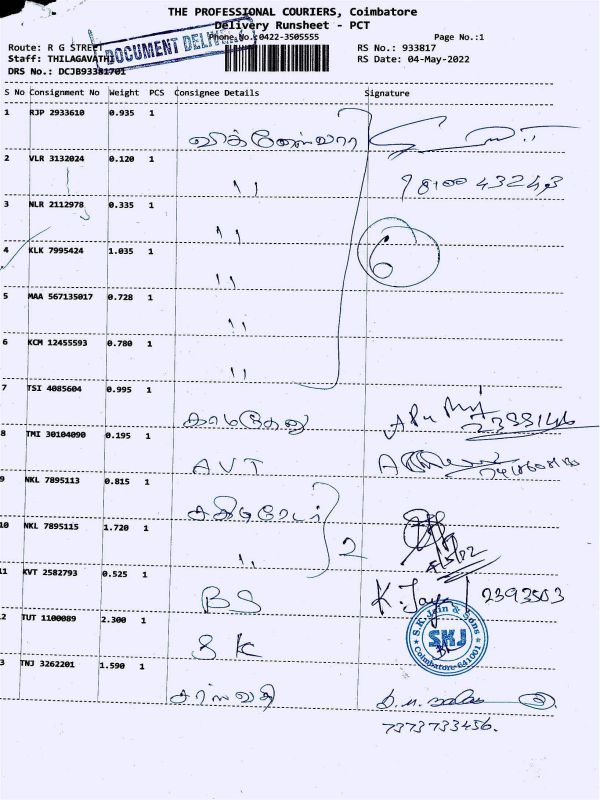 THE PROFESSIONAL COURIERS, Coimbatore
Delivery Runsheet - PCT
Phone No.:0422-3505555
Page No.:1
Route: R G STREET
RS No.: 933817
Staff: THILAGAVATHI
RS Date: 04-May-2022
DRS No.: DCJB93381701
DOCUMENT DELIVERY
S No Consignment No Weight PCS Consignee Details Signature
1 RJP 2933610 0.935 1
விக்னேஷ்வரா
2 VLR 3132024 0.120 1
11
98100 43243
3 NLR 2112978 0.335 1
11
4 KLK 7995424 1.035 1
11
6
5 MAA 567135017 0.728 1
11
6 KCM 12455593 0.780 1
11
7 TSI 4085604 0.995 1
காமதேனு
8 TMI 30104090 0.195 1
AVT
9 NKL 7895113 0.815 1
10 NKL 7895115 1.720 1
11 2
11 KVT 2582793 0.525 1
BS
K. Jaya 2393503
2 TUT 1100089 2.300 1
SK
S.K. Jain & Sons
SKJ
Coimbatore-641001
3 TNJ 3262201 1.590 1
7373733456.